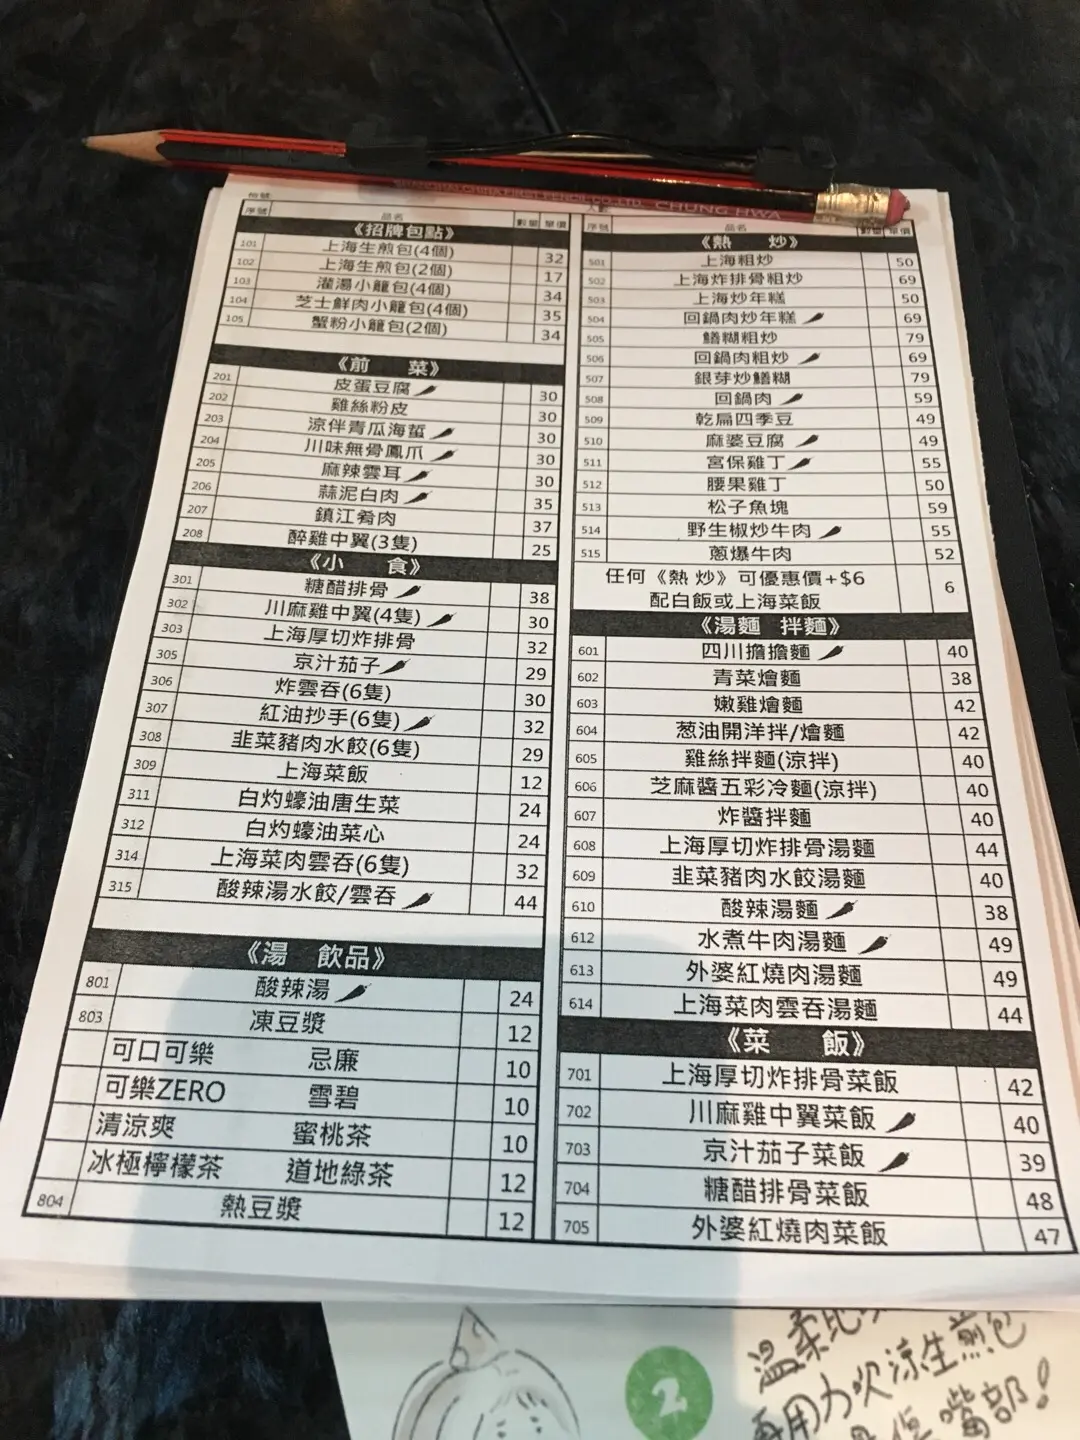 SHANGHAI CHINA FIRST PENCIL CO.,LTD. CHUNG HWA
序號 品名 數量 單價
《招牌包點》
101 上海生煎包(4個) 32
102 上海生煎包(2個) 17
103 灌湯小籠包(4個) 34
104 芝士鮮肉小籠包(4個) 35
105 蟹粉小籠包(2個) 34
《前 菜》
201 皮蛋豆腐 30
202 雞絲粉皮 30
203 涼伴青瓜海蜇 30
204 川味無骨鳳爪 30
205 麻辣雲耳 30
206 蒜泥白肉 35
207 鎮江肴肉 37
208 醉雞中翼(3隻) 25
《小 食》
301 糖醋排骨 38
302 川麻雞中翼(4隻) 30
303 上海厚切炸排骨 32
305 京汁茄子 29
306 炸雲吞(6隻) 30
307 紅油抄手(6隻) 32
308 韭菜豬肉水餃(6隻) 29
309 上海菜飯 12
311 白灼蠔油唐生菜 24
312 白灼蠔油菜心 24
314 上海菜肉雲吞(6隻) 32
315 酸辣湯水餃/雲吞 44
《湯 飲品》
801 酸辣湯 24
803 凍豆漿 12
可口可樂 忌廉 10
可樂ZERO 雪碧 10
清涼爽 蜜桃茶 10
冰極檸檬茶 道地綠茶 12
804 熱豆漿 12
序號 品名 數量 單價
《熱 炒》
501 上海粗炒 50
502 上海炸排骨粗炒 69
503 上海炒年糕 50
504 回鍋肉炒年糕 69
505 鱔糊粗炒 79
506 回鍋肉粗炒 69
507 銀芽炒鱔糊 79
508 回鍋肉 59
509 乾扁四季豆 49
510 麻婆豆腐 49
511 宮保雞丁 55
512 腰果雞丁 50
513 松子魚塊 59
514 野生椒炒牛肉 55
515 蔥爆牛肉 52
任何《熱炒》可優惠價+$6
配白飯或上海菜飯 6
《湯麵 拌麵》
601 四川擔擔麵 40
602 青菜燴麵 38
603 嫩雞燴麵 42
604 葱油開洋拌/燴麵 42
605 雞絲拌麵(涼拌) 40
606 芝麻醬五彩冷麵(涼拌) 40
607 炸醬拌麵 40
608 上海厚切炸排骨湯麵 44
609 韭菜豬肉水餃湯麵 40
610 酸辣湯麵 38
612 水煮牛肉湯麵 49
613 外婆紅燒肉湯麵 49
614 上海菜肉雲吞湯麵 44
《菜 飯》
701 上海厚切炸排骨菜飯 42
702 川麻雞中翼菜飯 40
703 京汁茄子菜飯 39
704 糖醋排骨菜飯 48
705 外婆紅燒肉菜飯 47
2
溫柔比
再用力吹涼生煎包
嘴部!